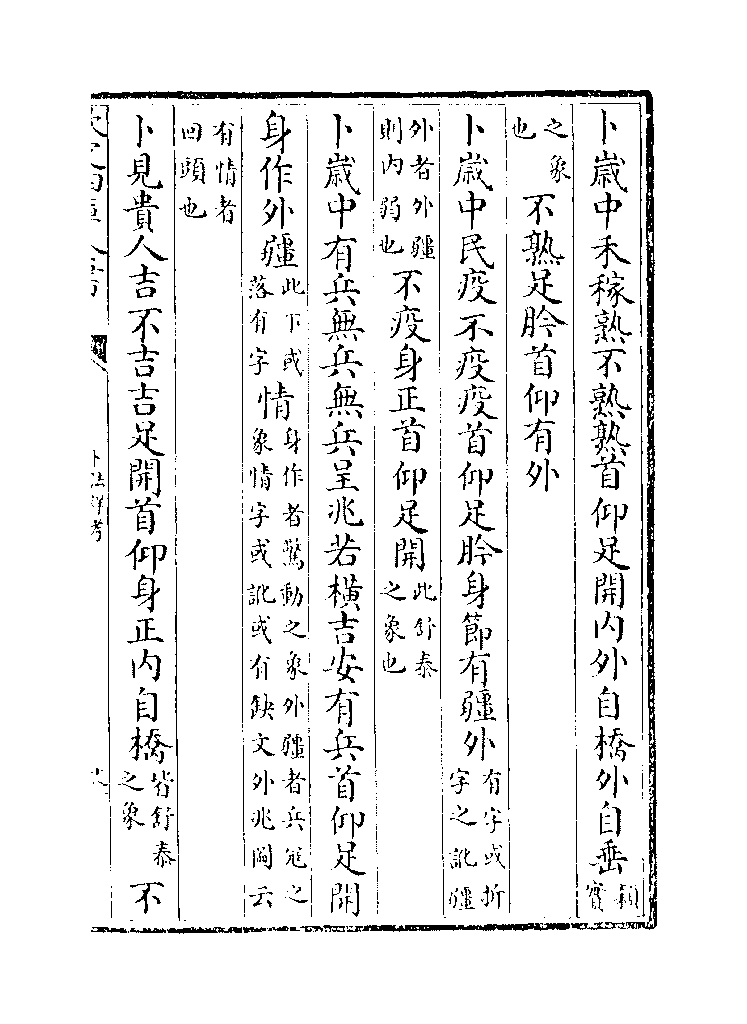 卜嵗中禾稼熟不熟熟首仰足開内外自橋外自垂穎實
之象也不熟足肣首仰有外
卜嵗中民疫不疫疫首仰足肣身節有彊外有字或折字之訛彊
外者外彊則内弱也不疫身正首仰足開此舒泰之象也
卜嵗中有兵無兵無兵呈兆若橫吉安有兵首仰足開
身作外彊此下或落有字情身作者驚動之象外彊者兵冦之象情字或訛或有缺文外兆闕云
有情者回頭也
卜見貴人吉不吉吉足開首仰身正内自橋皆舒泰之象不
卜法詳考